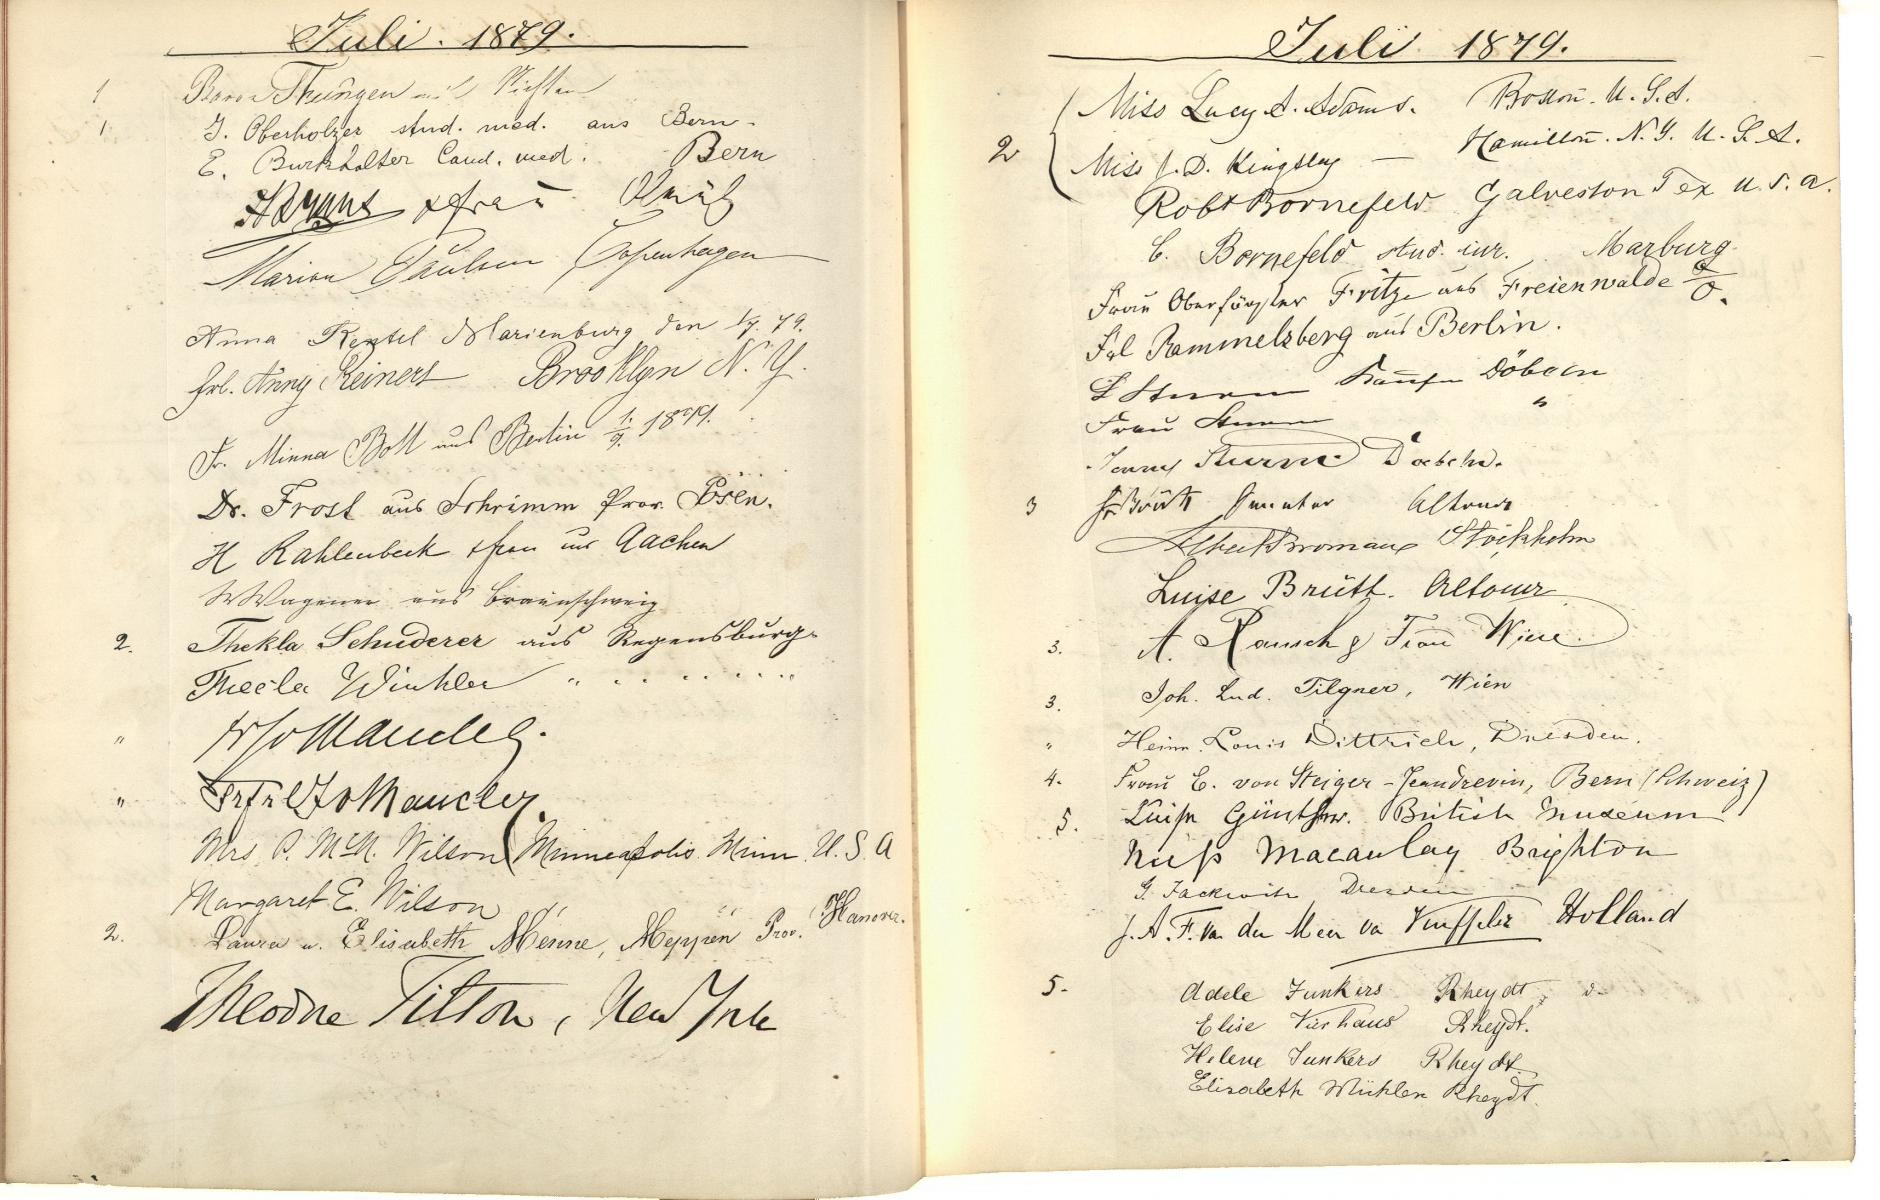 Juli. 1879.
1 Baron Thüngen mit
1. J. Oberholzer stud. med. aus Bern.
E. Burkhalter Cand. med. Bern
& Frau
Marion Paulsen Copenhagen
Anna Marienburg den 1/7. 79.
Frl. Anny Reinert Brooklyn N. Y.
Fr. Minna Boll aus Berlin 1879.
Dr. Frost aus Schrimm Prov. Posen.
H Kahlenbeck & Frau aus Aachen
W Wagener aus Braunschweig
2. Thekla Schuderer aus Regensburg.
Thecla Winkler " " "
"
"
Mrs. P. McN. Wilson (Minneapolis Minn. U. S. A
Margaret E. Wilson " "
2. Laura u. Elisabeth Menne, Meppen Prov. Hanover.
Theodore Tilton, New York
Juli 1879.
Miss Lucy A. Adams. Boston. U. S. A.
2 Miss J. D. Kingsley — Hamilton. N. Y. U. S. A.
Robt Bornefeld Galveston Tex U. S. A.
C. Bornefeld stud. iur. Marburg
Frau Oberförster Fritze aus Freienwalde a/O.
Frl Rammelsberg aus Berlin.
Sturm Döbeln
Frau Sturm "
Jenny Sturm Doebeln.
3 Brütt Senator Altona
Albert Broman Stockholm
Luise Brütt. Altona
3. A. Rausch & Frau Wien.
3. Joh. Lud. Tilgner, Wien
" Heinr. Louis Dittrich, Dresden.
4. Frau E. von Steiger-Jeandrevin, Bern (Schweiz)
5. Luise Günther. British Museum
Miss Macaulay Brighton
G. Dresden
J. A. F. van der Meer van Holland
5. Adele Junkers Rheydt
Elise Vierhaus Rheydt.
Helene Junkers Rheydt
Elisabeth Mühlen Rheydt.